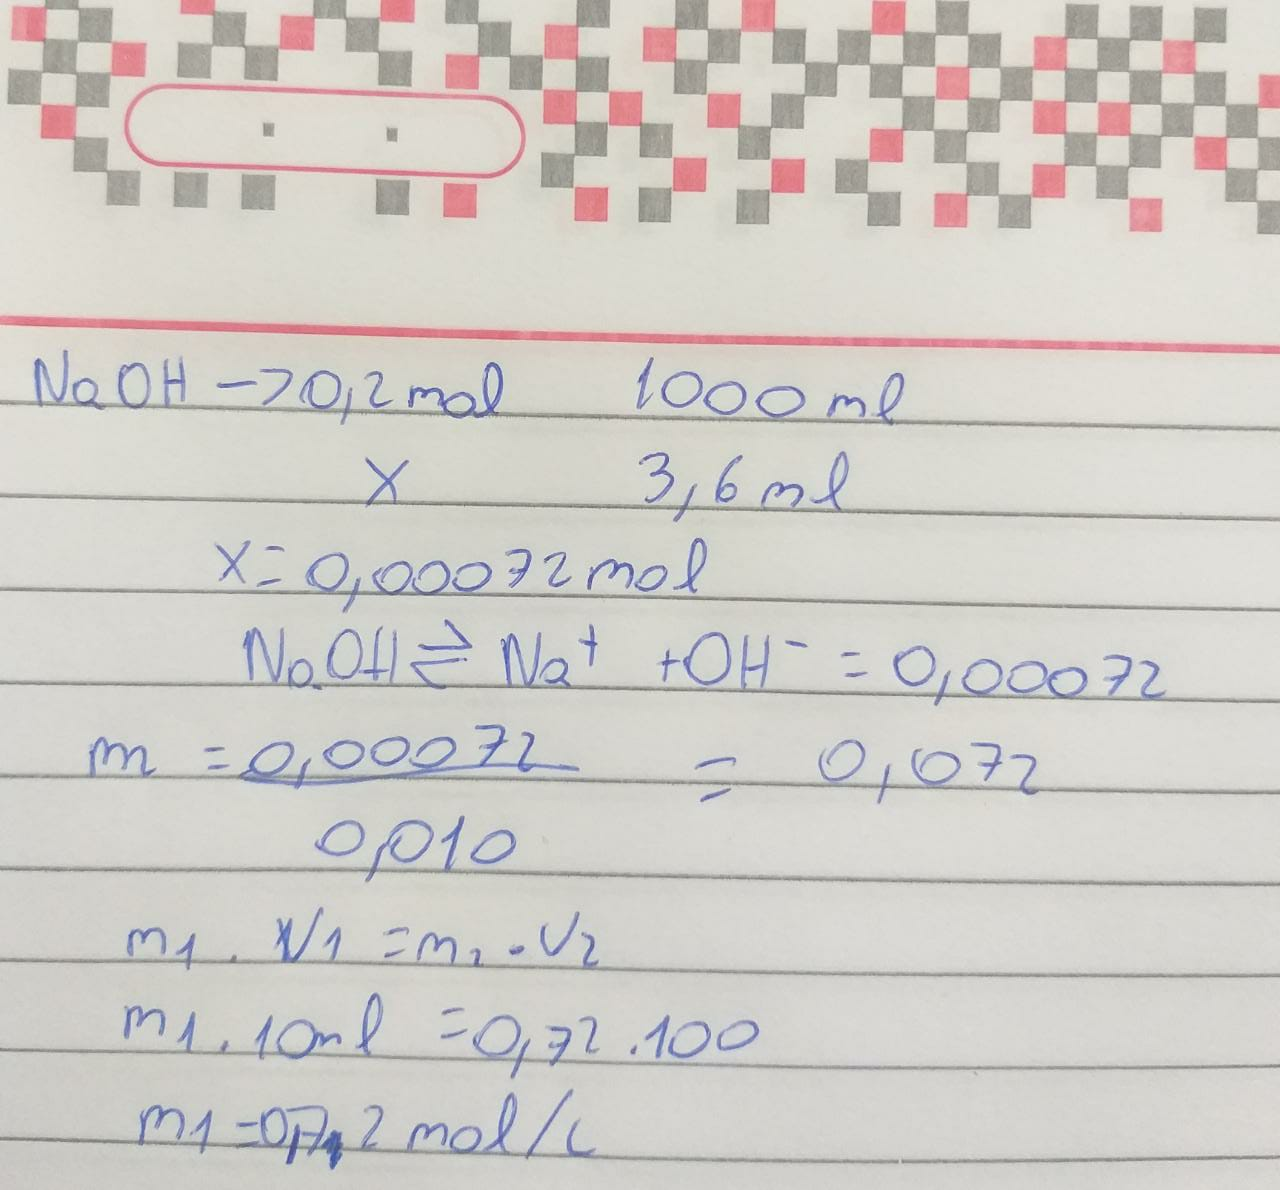 NaOH -> 0,2 mol 1000 ml
x 3,6 ml
x = 0,00072 mol
NaOH ⇌ Na⁺ + OH⁻ = 0,00072
m = 0,00072 = 0,072
0,010
m1 . V1 = m2 . V2
m1 . 10ml = 0,72 . 100
m1 = 0,72 mol/L